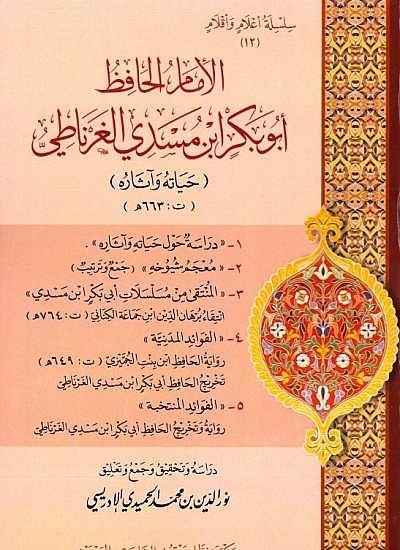 سِلْسِلَةُ أَعْلَامٍ وَأَقْلَامٍ
(١٢)
الإمام الحافظ
أبو بكر ابن مسدي الغرناطي
( حياته وآثاره )
( ت : ٦٦٣هـ )
١- « دراسة حول حياته وآثاره » .
٢- « معجم شيوخه » (جمع وترتيب)
٣- « المنتقى من مسلسلات أبي بكر ابن مسدي »
انتقاء برهان الدين ابن جماعة الكناني ( ت: ٧٦٤هـ )
٤- « الفوائد المدنية »
رواية الحافظ ابن بنت الجميزي ( ت : ٦٤٩هـ )
تخريج الحافظ أبي بكر ابن مسدي الغرناطي
٥- « الفوائد المنتخبة »
رواية وتخريج الحافظ أبي بكر ابن مسدي الغرناطي
دراسة وتحقيق وجمع وتعليق
نور الدين بن محمد الحميدي الإدريسي